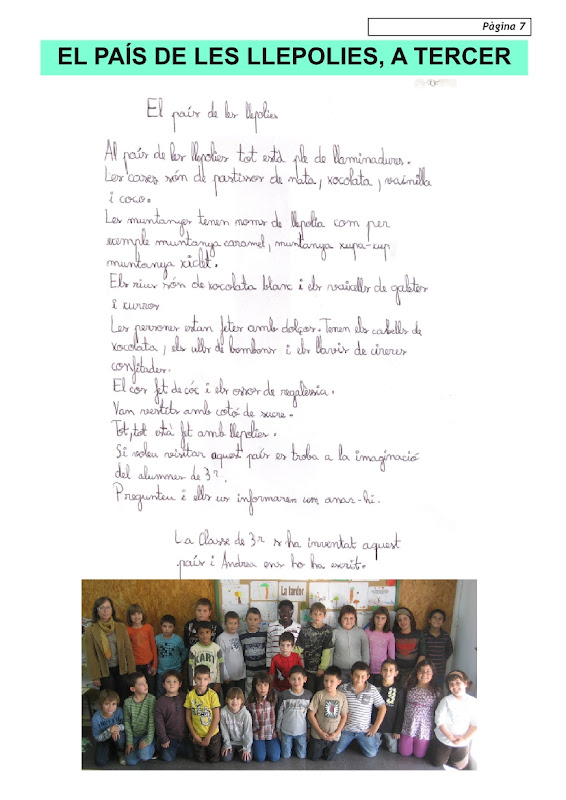 Pàgina 7
EL PAÍS DE LES LLEPOLIES, A TERCER
El país de les llepolies
Al país de les llepolies tot està ple de llaminadures.
Les cases són de pastissos de nata, xocolata, vainilla
i coco.
Les muntanyes tenen noms de llepolia com per
exemple muntanya caramel, muntanya xupa-xup
muntanya xiclet.
Els rius són de xocolata blanc i els vaixells de galetes
i xurros
Les persones estan fetes amb dolços. Tenen els cabells de
xocolata, els ulls de bombons i els llavis de cireres
confitades.
El cor fet de cóc i els ossos de regalèssia.
Van vestits amb cotó de sucre.
Tot, tot està fet amb llepolies.
Si voleu visitar aquest país es troba a la imaginació
del alumnes de 3r.
Pregunteu i ells us informaren com anar-hi.
La Classe de 3r s ha inventat aquest
país i Andrea ens ho ha escrit.
La tardor